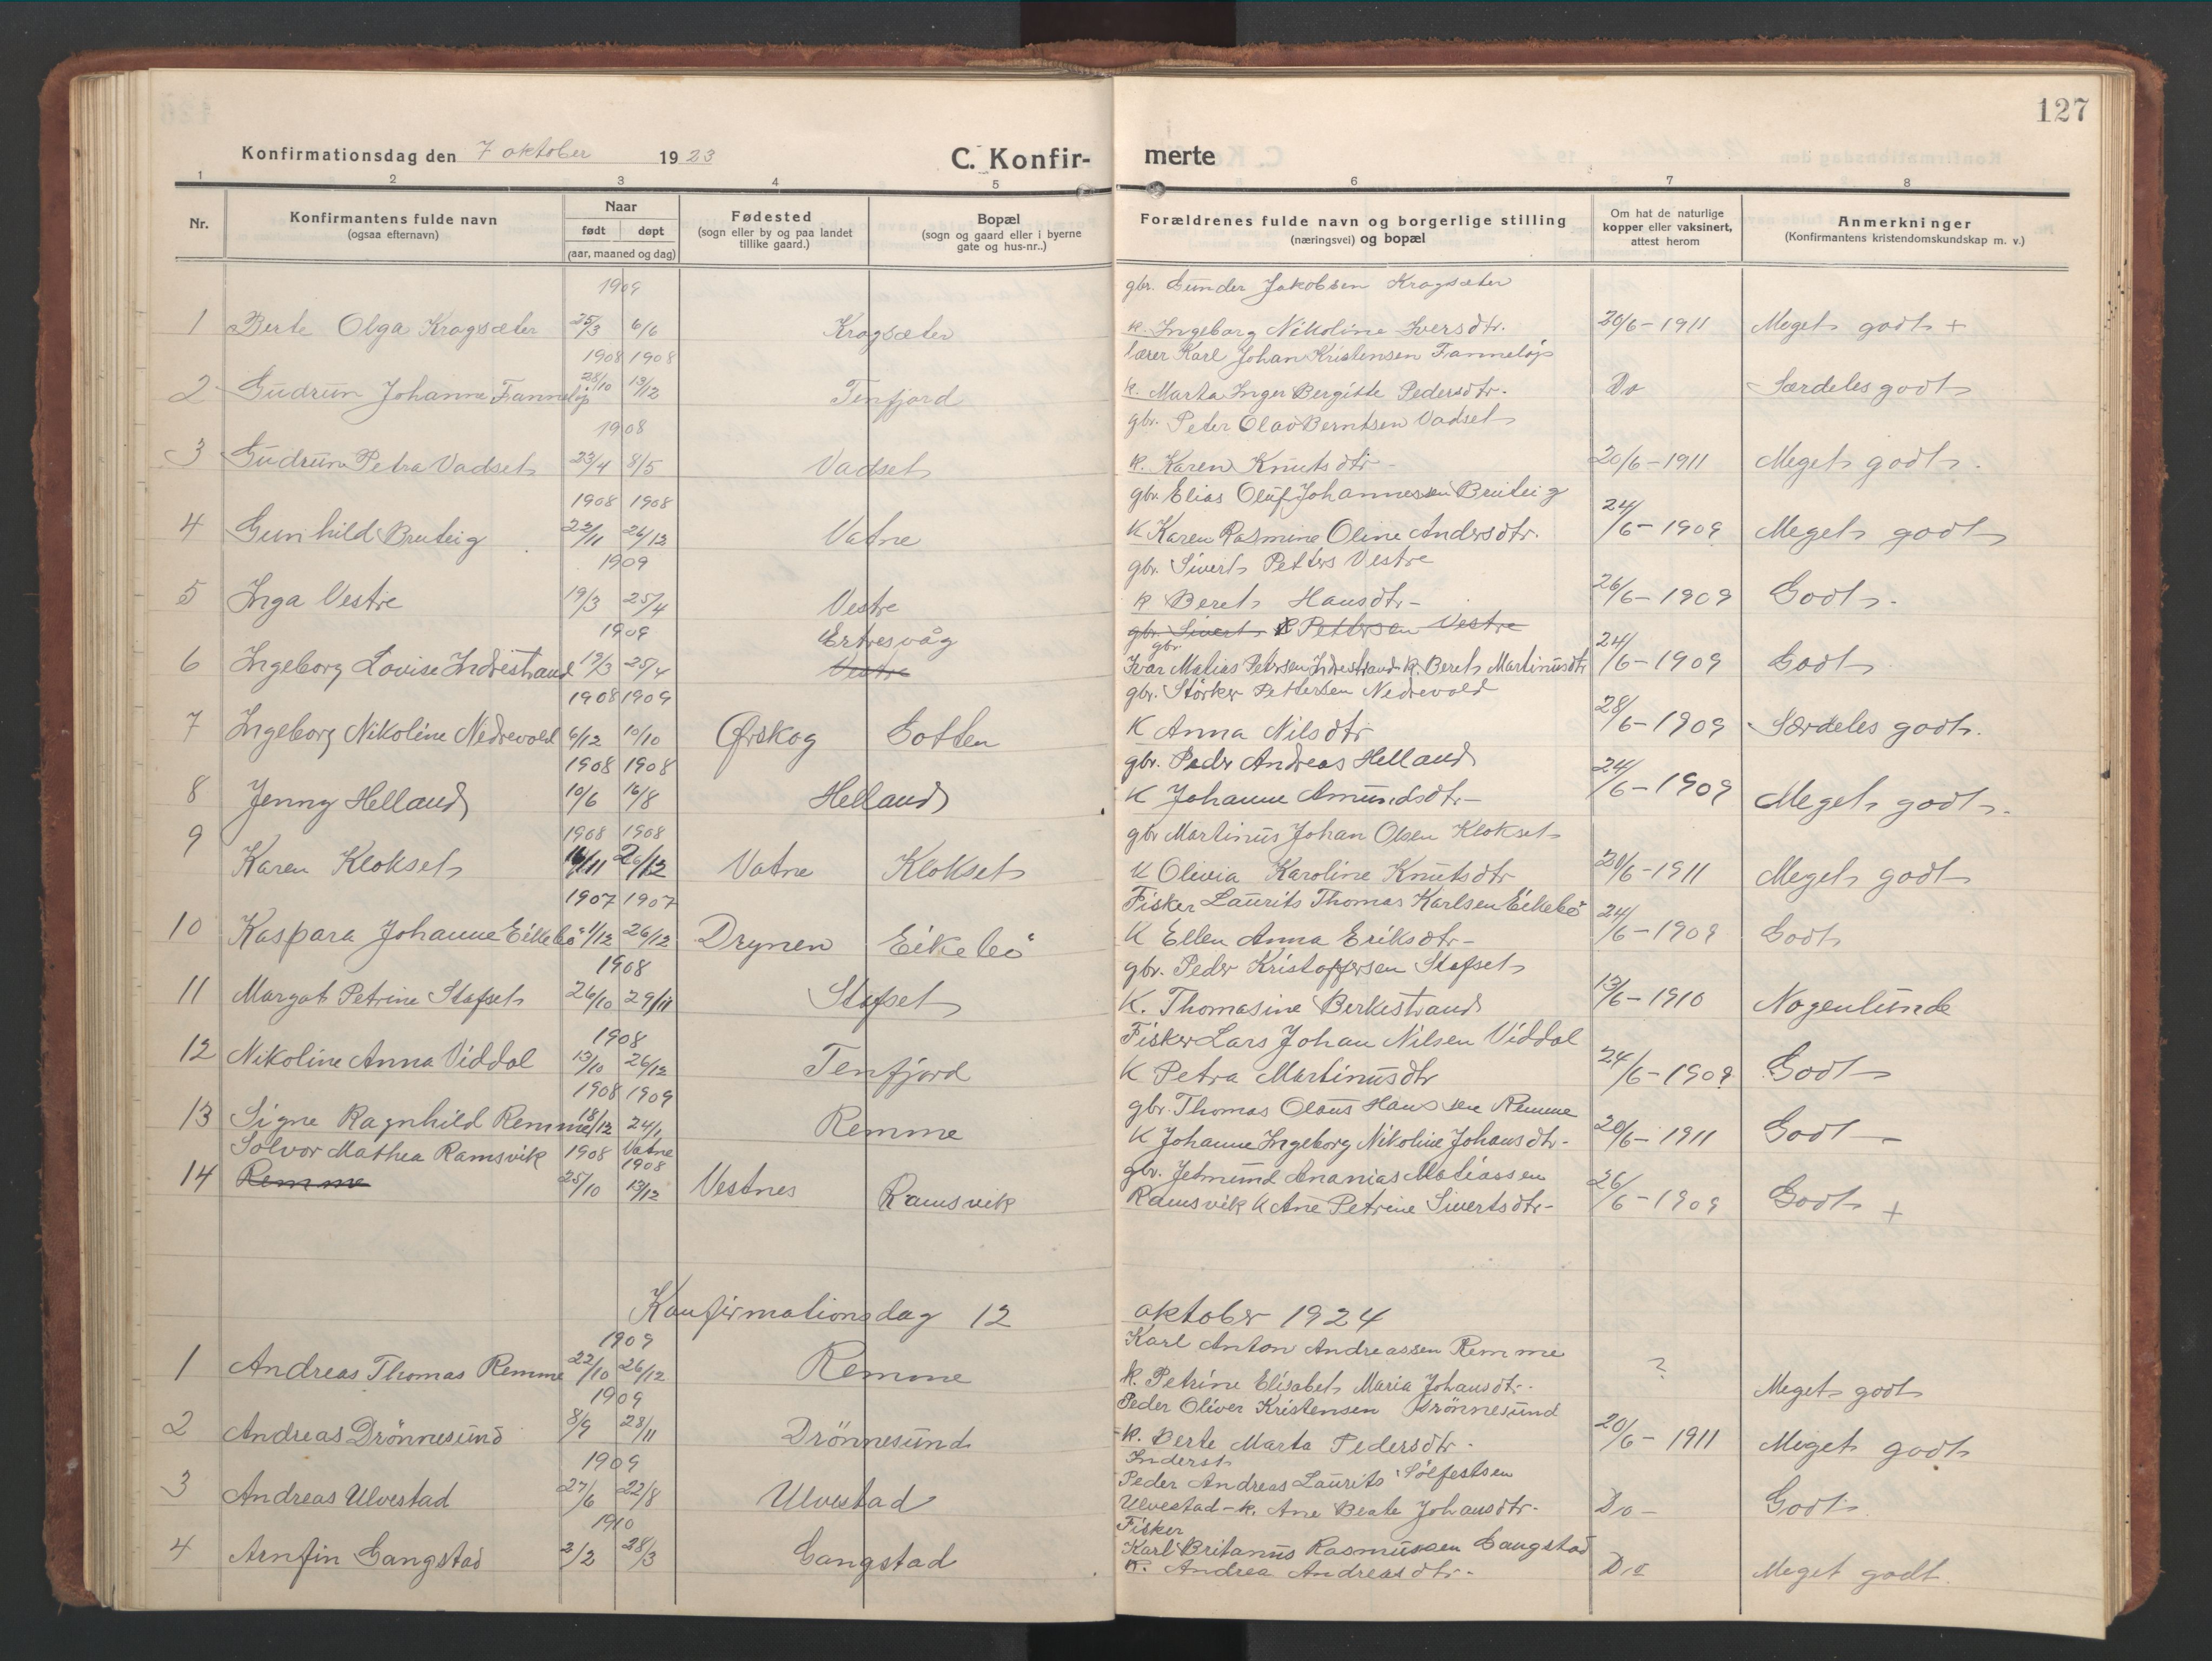 127
Konfirmationsdag den 7 oktober 1923 C. Konfir- merte
1 2 3 4 5 6 7 8
Nr. Konfirmantens fulde navn (ogsaa efternavn) Naar født døpt (aar, maaned og dag) Fødested (sogn eller by og paa landet tillike gaard.) Bopæl (sogn og gaard eller i byerne gate og hus-nr..) Forældrenes fulde navn og borgerlige stilling (næringsvei) og bopæl Om hat de naturlige kopper eller vaksinert, attest herom Anmerkninger (Konfirmantens kristendomskundskap m. v.)
1909 gbr. Gunder Jakobsen Kragsæter
1 Berte Olga Kragsæter 25/3 6/6 Kragsæter k. Ingeborg Nikoline Iversdtr. 20/6-1911 Meget godt +
1908 1908 lærer Karl Johan Kristensen Fanneløp
2 Gudrun Johanne Fanneløp 28/10 13/12 Tenfjord k. Marta Inger Bergitte Pedersdtr. Do Særdeles godt
1908 gbr. Peter Olav Berntsen Vadset
3 Gudrun Petra Vadset 23/4 8/5 Vadset k. Karen Knutsdtr- 20/6-1911 Meget godt.
1908 1908 gbr. Elias Oluf Johannessen Bruteig
4 Gunhild Bruteig 22/11 26/12 Vatne K Karen Rasmine Oline Andersdtr. 24/6-1909 Meget godt
1909 gbr. Sivert Petters Vestre
5 Inga Vestre 19/3 25/4 Vestre k Beret Hansdtr- 26/6-1909 Godt.
1909 Ertresvåg gbr. Sivert Pettersen Vestre
6 Ingeborg Lovise Indrestrand 19/3 25/4 Vestre gbr. Ivar Matias Petersen Indrestrand k. Beret Martinusdtr 24/6-1909 Godt
1908 1909 gbr. Störker Pettersen Nedrevold
7 Ingeborg Nikoline Nedrevold 6/12 10/10 Ørskog Gotten K Anna Nilsdtr 28/6-1909 Særdeles godt.
1908 1908 gbr. Peder Andreas Helland
8 Jenny Helland 10/6 16/8 Helland K Johanne Amundsdtr- 24/6-1909 Meget godt.
1908 1908 gbr Martinus Johan Olsen Klokset
9 Karen Klokset 16/11 26/12 Vatne Klokset K Olivia Karoline Knutsdtr 20/6-1911 Meget godt
1907 1907 Fisker Laurits Thomas Karlsen Eikebö
10 Kaspara Johanne Eikebö 1/12 26/12 Drynen Eikebö K Ellen Anna Eriksdtr- 24/6-1909 Godt
1908 gbr. Peder Kristoffersen Stafset
11 Margot Petrine Stafset 26/10 29/11 Stafset K. Thomasine Berkestrand 13/6-1910 Nogenlunde
1908 Fisker Lars Johan Nilsen Viddal
12 Nikoline Anna Viddal 13/10 26/12 Tenfjord K Petra Martinusdtr 24/6-1909 Godt
1908 1909 gbr. Thomas Olaus Hansen Remme
13 Signe Ragnhild Remme 18/12 24/1 Remme K Johanne Ingeborg Nikoline Johansdtr- 20/6-1911 Godt
Solvor Mathea Ramsvik 1908 Vatne 1908 gbr. Jetmund Ananias Matiassen
14 Remme 25/10 13/12 Vestnes Ramsvik Ramsvik K Ane Petrine Sivertsdtr- 26/6-1909 Godt +
Konfirmationsdag 12 oktober 1924
1909 Karl Anton Andreassen Remme
1 Andreas Thomas Remme 22/10 26/12 Remme k. Petrine Elisabet Maria Johansdtr. ? Meget godt
1909 Peder Oliver Kristensen Drönnesund
2 Andreas Drönnesund 8/9 28/11 Drönnesund k. Berte Marta Pedersdtr. 20/6-1911 Meget godt
1909 Inderst Peder Andreas Laurits Sölfestsen
3 Andreas Ulvestad 27/6 22/8 Ulvestad Ulvestad-k. Ane Beate Johansdtr. Do- Godt
1910 Fisker Karl Britanus Rasmussen Gangstad
4 Arnfin Gangstad 2/2 28/3 Gangstad K. Andrea Andreasdtr- Do Meget godt.